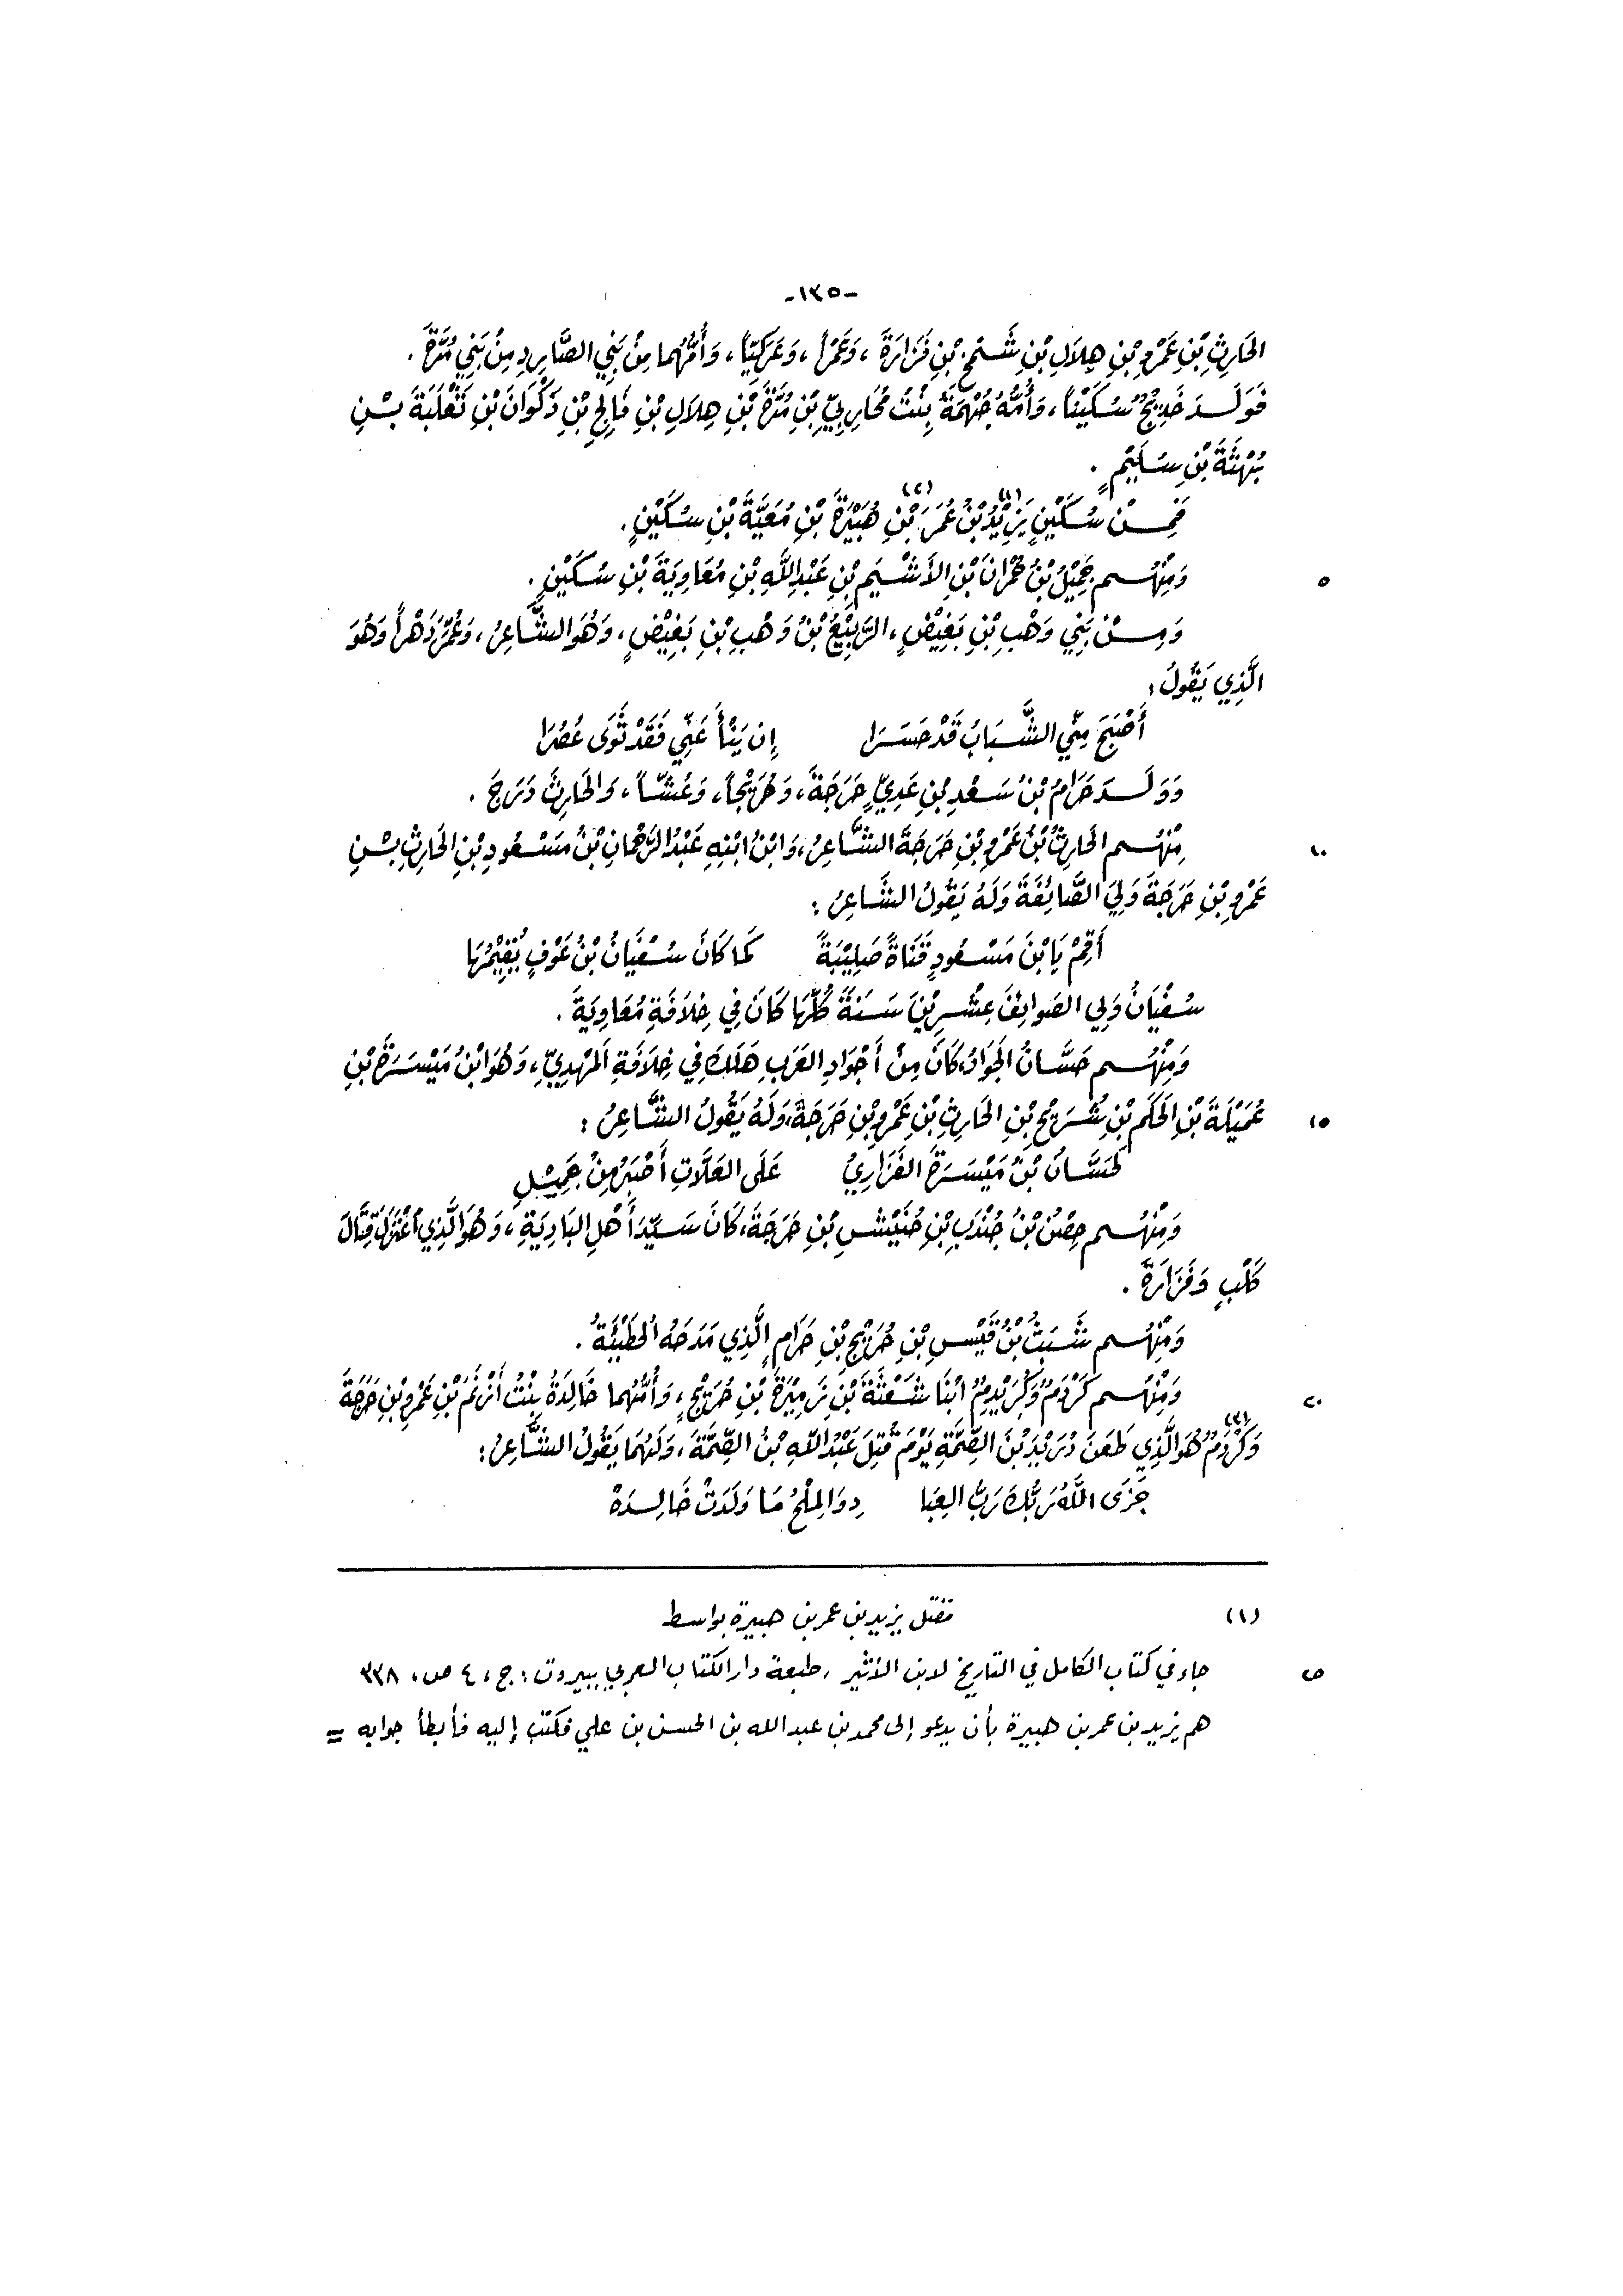 -١٣٥-
الحَارِثِ بْنِ عَمْرِو بْنِ هِلاَلِ بْنِ شَمْخِ بْنِ فَزَارَةَ، وَعَمْراً، وَعَرَكِيّاً، وَأُمُّهُما مِنْ بَنِي الصَّارِدِ مِنْ بَنِي مُرَّةَ.
فَوَلَدَ خَدِيْجٌ سُكَيْناً، وَأُمُّهُ جُهْمَةُ بِنْتُ مُحَارِبِيِّ بْنِ مُرَّةَ بْنِ هِلاَلِ بْنِ فَالِجِ بْنِ ذَكْوَانَ بْنِ ثَعْلَبَةَ بْنِ
بُهْثَةَ بْنِ سُلَيْمٍ.
فَمِنْ سُكَيْنٍ يَزِيْدُ (١) بْنُ عُمَرَ بْنِ (٢) هُبَيْرَةَ بْنِ مُعَيَّةَ بْنِ سُكَيْنٍ.
٥ وَمِنْهُم جَمِيْلُ بْنُ حُمْرَانَ بْنِ الأَشْيَمِ بْنِ عَبْدِ اللَّهِ بْنِ مُعَاوِيَةَ بْنِ سُكَيْنٍ.
وَمِنْ بَنِي وَهْبِ بْنِ بَغِيْضٍ، الرَّبِيْعُ بْنُ وَهْبِ بْنِ بَغِيْضٍ، وَهُوَ الشَّاعِرُ، وَعُمِّرَ دَهْراً وَهُوَ
الَّذِي يَقُولُ:
أَصْبَحَ مِنِّي الشَّبَابُ قَدْ حَسَرَا إِن يَنْأَ عَنِّي فَقَدْ ثَوَى عُصُرَا
وَوَلَدَ حَرَامُ بْنُ سَعْدِ بْنِ عَدِيٍّ حَرَجَةَ، وَحُرَيْجاً، وَعُشّاً، وَالحَارِثَ دَرَجَ.
١٠ مِنْهُم الحَارِثُ بْنُ عَمْرِو بْنِ حَرَجَةَ الشَّاعِرُ، وَابْنُ ابْنِهِ عَبْدُ الرَّحْمَانِ بْنُ مَسْعُودِ بْنِ الحَارِثِ بْنِ
عَمْرِو بْنِ حَرَجَةَ وَلِيَ الصَّائِفَةَ وَلَهُ يَقُولُ الشَّاعِرُ:
أَقِمْ يَا بْنَ مَسْعُودٍ قَنَاةً صَلِيْبَةً كَمَا كَانَ سُفْيَانُ بْنُ عَوْفٍ يُقِيْمُهَا
سُفْيَانُ وَلِي الصَوائِفَ عِشْرِيْنَ سَنَةً كُلُّهَا كَانَ فِي خِلاَفَةِ مُعَاوِيَةَ.
وَمِنْهُم حَسَّانُ الجَوَادُ، كَانَ مِنْ أَجْوَادِ العَرَبِ هَلَكَ فِي خِلاَفَةِ المَهْدِيِّ، وَهُوَ ابْنُ مَيْسَرَةَ بْنِ
١٥ عُمَيْلَةَ بْنِ الحَكَمِ بْنِ شُرَيْحِ بْنِ الحَارِثِ بْنِ عَمْرِو بْنِ حَرَجَةَ، وَلَهُ يَقُولُ الشَّاعِرُ:
لَحَسَّانُ بْنُ مَيْسَرَةَ الفَزَارِيْ عَلَى العَلاَّتِ أَصْبَرُ مِنْ جَمِيْلِ
وَمِنْهُم حِصْنُ بْنُ جُنْدَبِ بْنِ خُنَيْسِ بْنِ حَرَجَةَ، كَانَ سَيِّدَ أَهْلِ البَادِيَةِ، وَهُوَ الَّذِي اعْتَزَلَ قِتَالَ
كَلْبٍ وَفَزَارَةَ.
وَمِنْهُم شَبَثُ بْنُ قَيْسِ بْنِ حُرَيْجِ بْنِ حَرَامٍ الَّذِي مَدَحَهُ الحُطَيْئَةُ.
٢٠ وَمِنْهُم كَرْدَمٌ وَكُرَيْدِمٌ ابْنَا شَعْثَةَ بْنِ زَمِيْرَةَ بْنِ حُرَيْجٍ، وَأُمُّهُما خَالِدَةُ بِنْتُ أَزْنَمَ بْنِ عَمْرِو بْنِ حَرَجَةَ
وَكَرْدَمٌ (٣) هُوَ الَّذِي طَعَنَ دُرَيْدَ بْنَ الصِّمَّةِ يَوْمَ قُتِلَ عَبْدُ اللهِ بْنُ الصِّمَّةَ، وَلَهُمَا يَقُولُ الشَّاعِرُ:
جَزَى اللَّهُ رَبُّكَ رَبُّ العِبَا دِ وَالمِلْحُ مَا وَلَدَتْ خَالِدَهْ
(١) مقتل يزيد بن عمر بن هبيرة بواسط
٥ جاء في كتاب الكامل في التاريخ لابن الأثير، طبعة دار الكتاب العربي ببيروت: ج، ٤ ص، ٣٣٨
هم يزيد بن عمر بن هبيرة بأن يدعو إلى محمد بن عبد الله بن الحسن بن علي فكتب إليه فأبطأ جوابه =